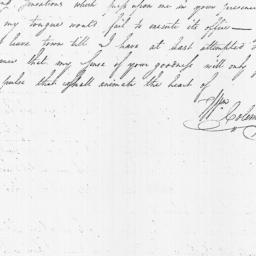 sensations which press upon me in your presence
my tongue would fail to execute its office —
leave town till I have at least attempted
that my sense of your goodness will only
pulse that shall animate the heart of
Wm Colem